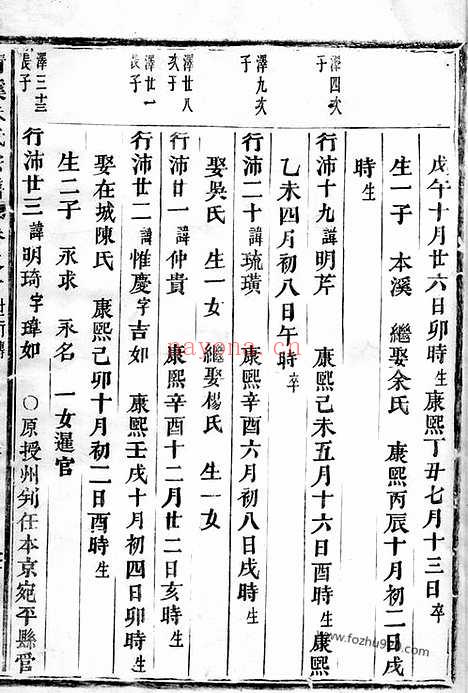 戊午十月廿六日卯時生康熙丁丑七月十三日卒
生一子 本溪 繼娶余氏 康熙丙辰十月初二日戌
時生
澤四次子
行沛十九諱明芹 康熙己未五月十六日酉時生康熙
乙未四月初八日午時卒
澤九次子
行沛二十諱琉璜 康熙辛酉六月初八日戌時生
娶吳氏 生一女 繼娶楊氏 生一女
澤廿八次子
行沛廿一諱仲貴 康熙辛酉十二月廿二日亥時生
澤廿一長子
行沛廿二諱惟慶字吉如 康熙壬戌十月初四日卯時生
娶在城陳氏 康熙己卯十月初二日酉時生
生二子 永求 永名 一女暹官
澤三十三長子
行沛廿三諱明琦字瑋如 ○原授州判任本京宛平縣管
nayona.cn
www.fozhu920.com